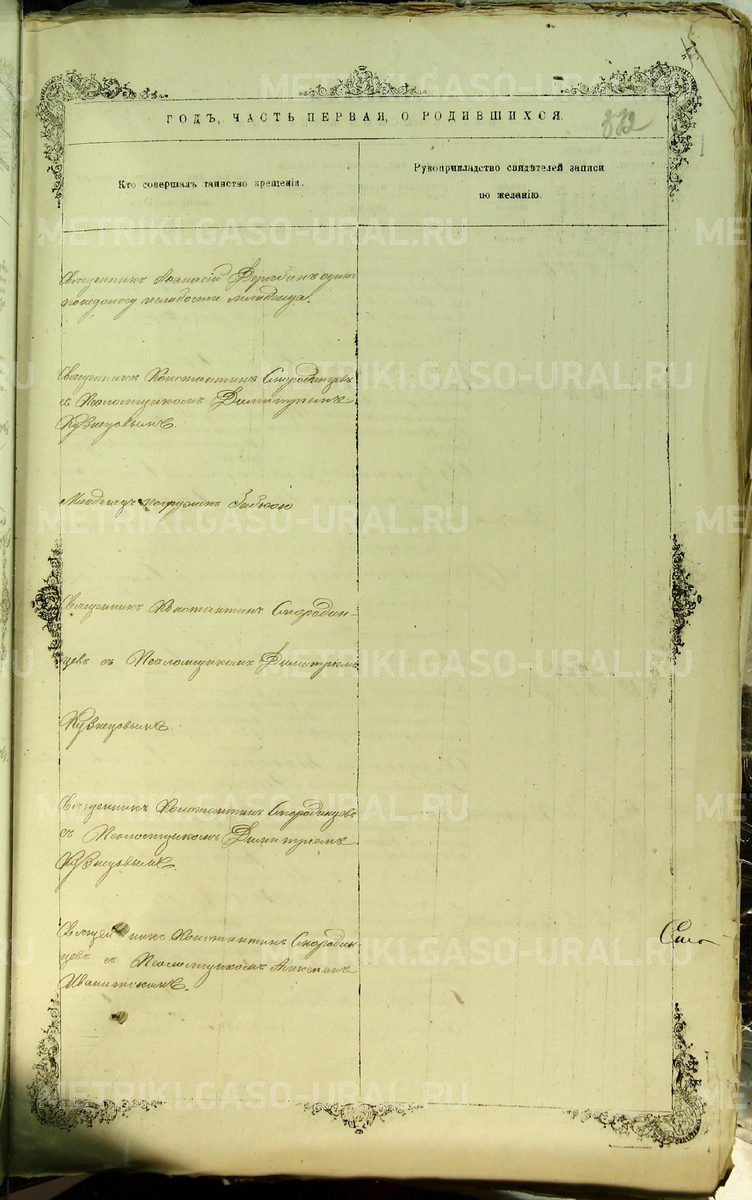 ГОДЪ, ЧАСТЬ ПЕРВАЯ, О РОДИВШИХСЯ.
832
Кто совершалъ таинство крещенія.
Рукоприкладство свидѣтелей записи
по желанію.
Священникъ Аѳанасій
младенца.
Священникъ Константинъ Смородинцевъ
съ Псаломщикомъ Димитріемъ
Кузнецовымъ.
Младенецъ погруженъ бабкою
Священникъ Константинъ Смородин-
цевъ съ Псаломщикомъ Димитріемъ
Кузнецовымъ.
Священникъ Константинъ Смородинцевъ
съ Псаломщикомъ Димитріемъ
Кузнецовымъ.
Священникъ Константинъ Смородин-
цевъ съ Псаломщикомъ Алексѣемъ
METRIKI.GASO-URAL.RU